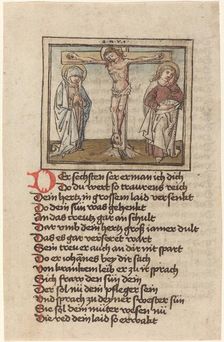 I·N·R·I
DEr sechsten ser erman ich dich
Do du wert so traurens reich
Dein hertz in grossem laid versenkt
Do dein sun was gehenkt
An das kreutz gar an schult
Dar vmb dein hertz groß iamer dult
Das es gar verseret wart
Sein treu er auch an dir nit spart
Do er iohannes bey dir sach
Von krankem leib er zu ir sprach
Sich fraw den sun dein
Der sol nu dein pfleger sein
Vnd sprach zu deyner swester sun
Sie sol dein muter wesen nu
Die red dein laid so erwakt